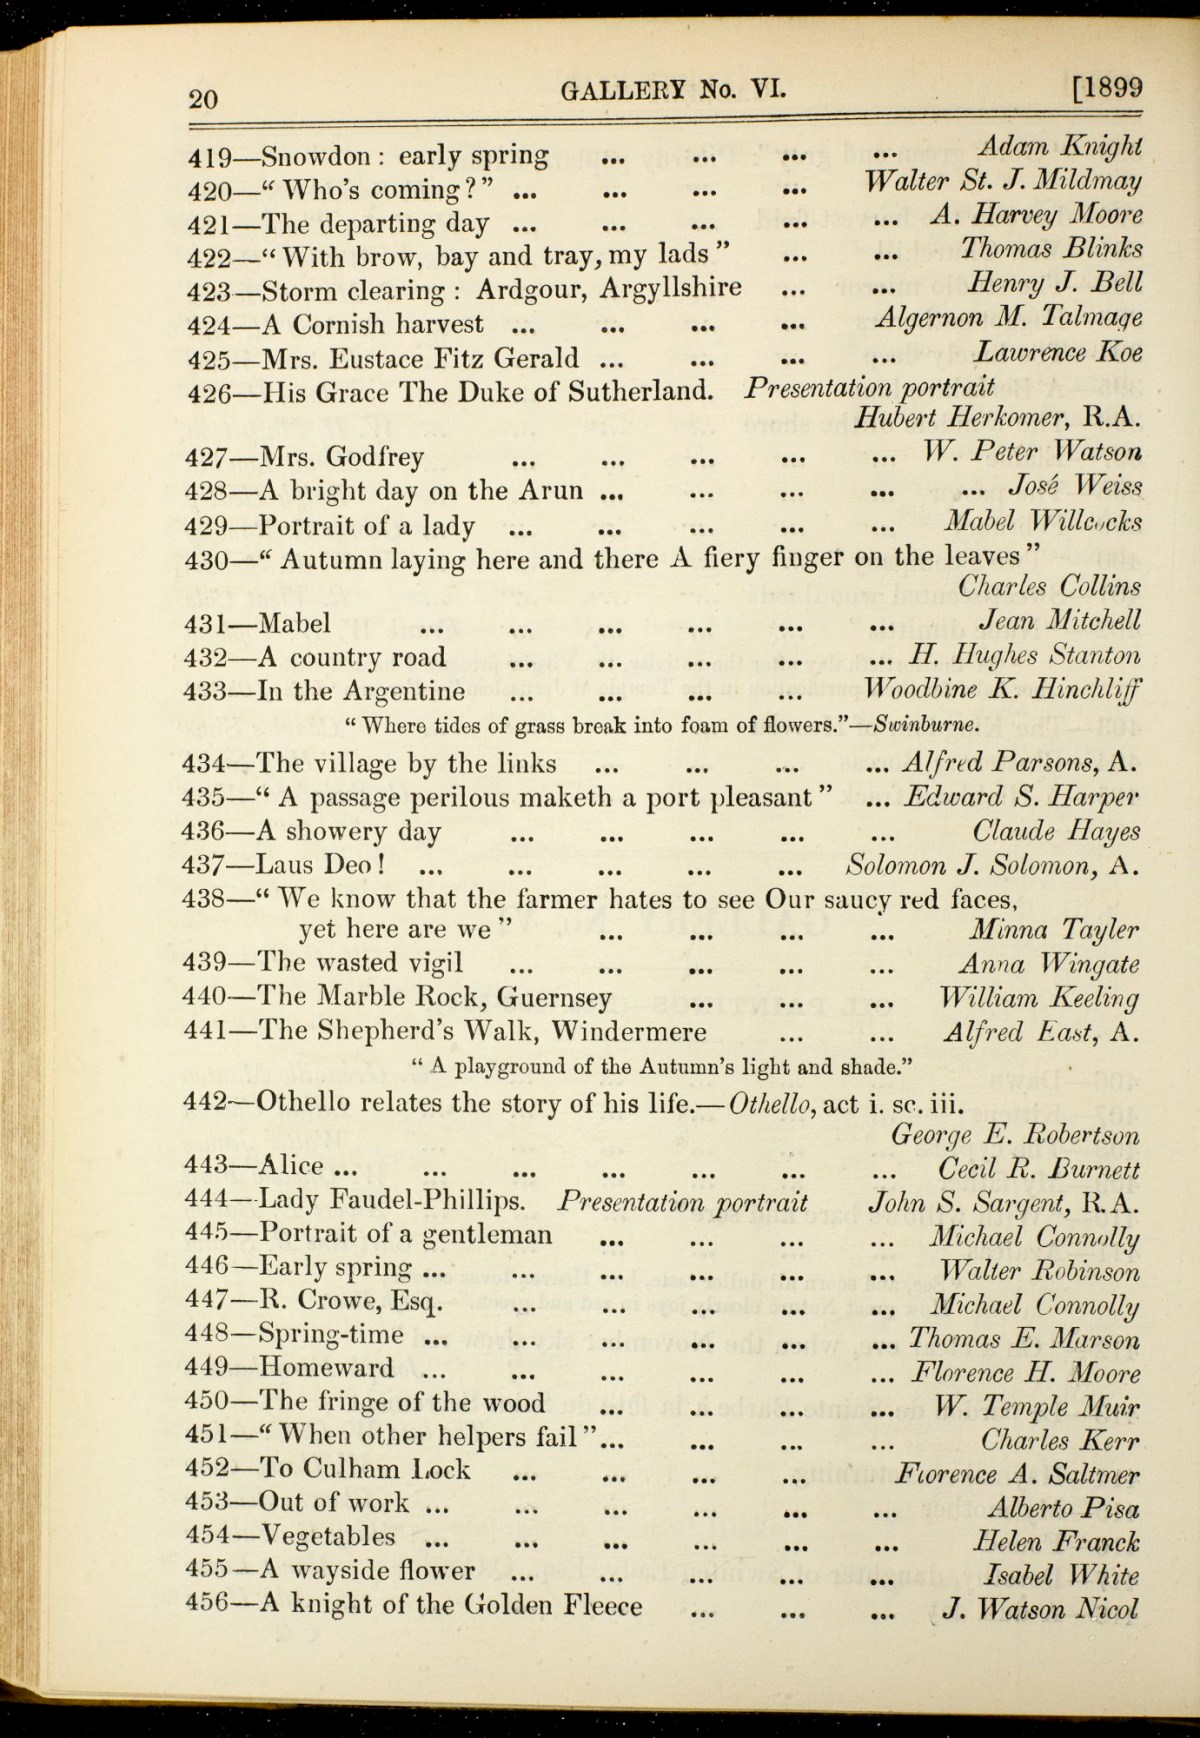 20 GALLERY No. VI. [1899
419—Snowdon : early spring ... ... ... ... Adam Knight
420—“ Who's coming? ” ... ... ... ... Walter St. J. Mildmay
421—The departing day ... ... ... ... ... A. Harvey Moore
422—“ With brow, bay and tray, my lads ” ... ... Thomas Blinks
423—Storm clearing : Ardgour, Argyllshire ... ... Henry J. Bell
424—A Cornish harvest ... ... ... ... Algernon M. Talmage
425—Mrs. Eustace Fitz Gerald ... ... ... ... Lawrence Koe
426—His Grace The Duke of Sutherland. Presentation portrait
Hubert Herkomer, R.A.
427—Mrs. Godfrey ... ... ... ... ... W. Peter Watson
428—A bright day on the Arun ... ... ... ... ... José Weiss
429—Portrait of a lady ... ... ... ... ... Mabel Willcocks
430—“ Autumn laying here and there A fiery finger on the leaves ”
Charles Collins
431—Mabel ... ... ... ... ... ... Jean Mitchell
432—A country road ... ... ... ... ... H. Hughes Stanton
433—In the Argentine ... ... ... ... ...Woodbine K. Hinchliff
“ Where tides of grass break into foam of flowers.”—Swinburne.
434—The village by the links ... ... ... ... Alfred Parsons, A.
435—“ A passage perilous maketh a port pleasant ” ... Edward S. Harper
436—A showery day ... ... ... ... ... Claude Hayes
437—Laus Deo ! ... ... ... ... ... Solomon J. Solomon, A.
438—“ We know that the farmer hates to see Our saucy red faces,
yet here are we ” ... ... ... ... Minna Tayler
439—The wasted vigil ... ... ... ... ... Anna Wingate
440—The Marble Rock, Guernsey ... ... ... William Keeling
441—The Shepherd's Walk, Windermere ... ... Alfred East, A.
“ A playground of the Autumn's light and shade.”
442—Othello relates the story of his life.—Othello, act i. sc. iii.
George E. Robertson
443—Alice ... ... ... ... ... ... ... Cecil R. Burnett
444—Lady Faudel-Phillips. Presentation portrait John S. Sargent, R.A.
445—Portrait of a gentleman ... ... ... ... Michael Connolly
446—Early spring ... ... ... ... ... ... Walter Robinson
447—R. Crowe, Esq. ... ... ... ... ... Michael Connolly
448—Spring-time ... ... ... ... ... ... Thomas E. Marson
449—Homeward ... ... ... ... ... ... Florence H. Moore
450—The fringe of the wood ... ... ... ... W. Temple Muir
451—“ When other helpers fail ”... ... ... ... Charles Kerr
452—To Culham Lock ... ... ... ... Florence A. Saltmer
453—Out of work ... ... ... ... ... ... Alberto Pisa
454—Vegetables ... ... ... ... ... ... Helen Franck
455—A wayside flower ... ... ... ... ... Isabel White
456—A knight of the Golden Fleece ... ... ... J. Watson Nicol